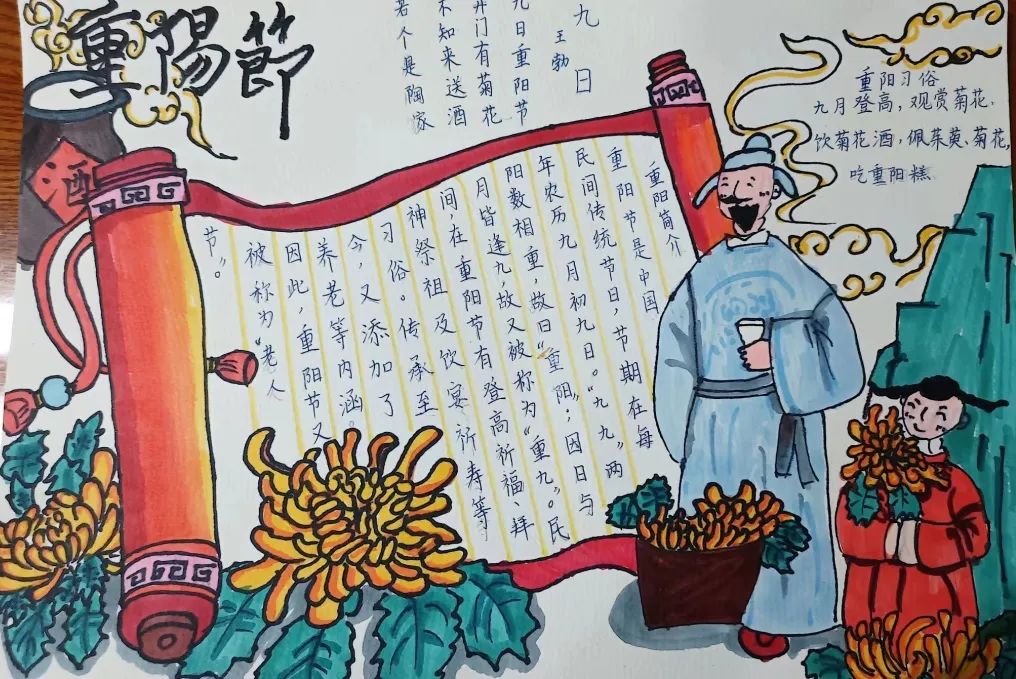 重陽節
酒
九日
王勃
九日重阳节
开门有菊花
不知来送酒
若个是陶家
重阳习俗
九月登高，观赏菊花.
饮菊花酒,佩茱萸、菊花,
吃重阳糕
重阳简介
重阳节是中国
民间传统节日，节期在每
年农历九月初九日。“九九”两
阳数相重，故曰“重阳”；因日与
月皆逢九，故又被称为“重九”。民
间，在重阳节有登高祈福、拜
神祭祖及饮宴祈寿等
习俗。传承至
今，又添加了
养老等内涵。
因此，重阳节又
被称为“老人
节”。